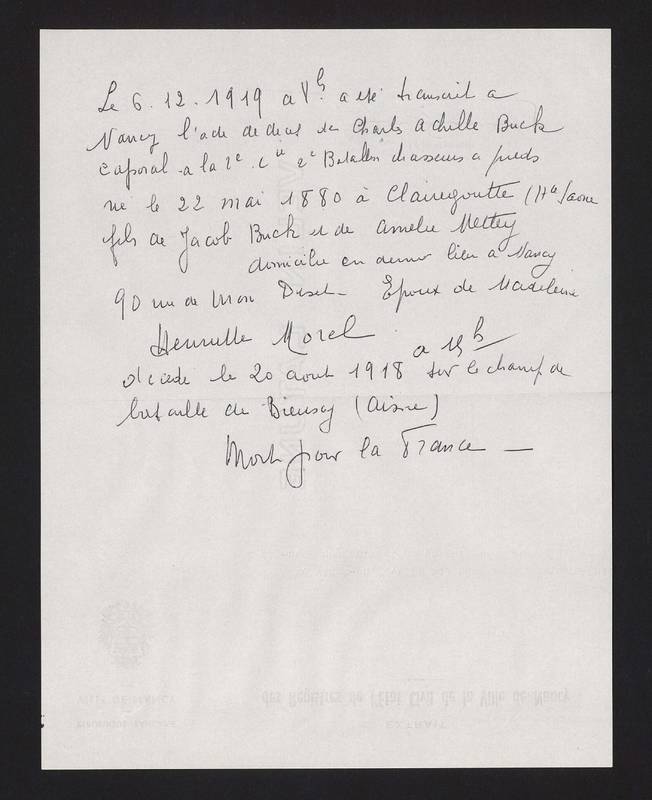 Le 6.12.1919 a été transcrit a
Nancy l'acte de décès de Charles Achille Buck
Caporal a la 2e Cie 2e Bataillon chasseurs a pieds
né le 22 mai 1880 à Clairegoutte (Hte Saone
fils de Jacob Buck et de Amelie Mettey
domicilié en dernier lieu à Nancy
90 rue de Mon Désert - Epoux de Madeleine
Henriette Morel
a 15h
décédé le 20 aout 1918 sur le champ de
bataille de Bieuxy (Aisne)
Mort pour la France —
des Registres de l'Etat Civil de la Ville de Nancy
VILLE DE NANCY
EXTRAIT